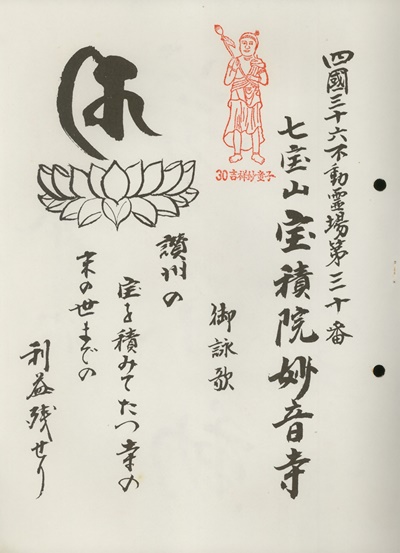 四國三十六不動霊場第三十番
七宝山宝積院妙音寺
30吉祥妙童子
御詠歌
讃州の
宝を積みてたつ寺の
末の世までの
利益残せり